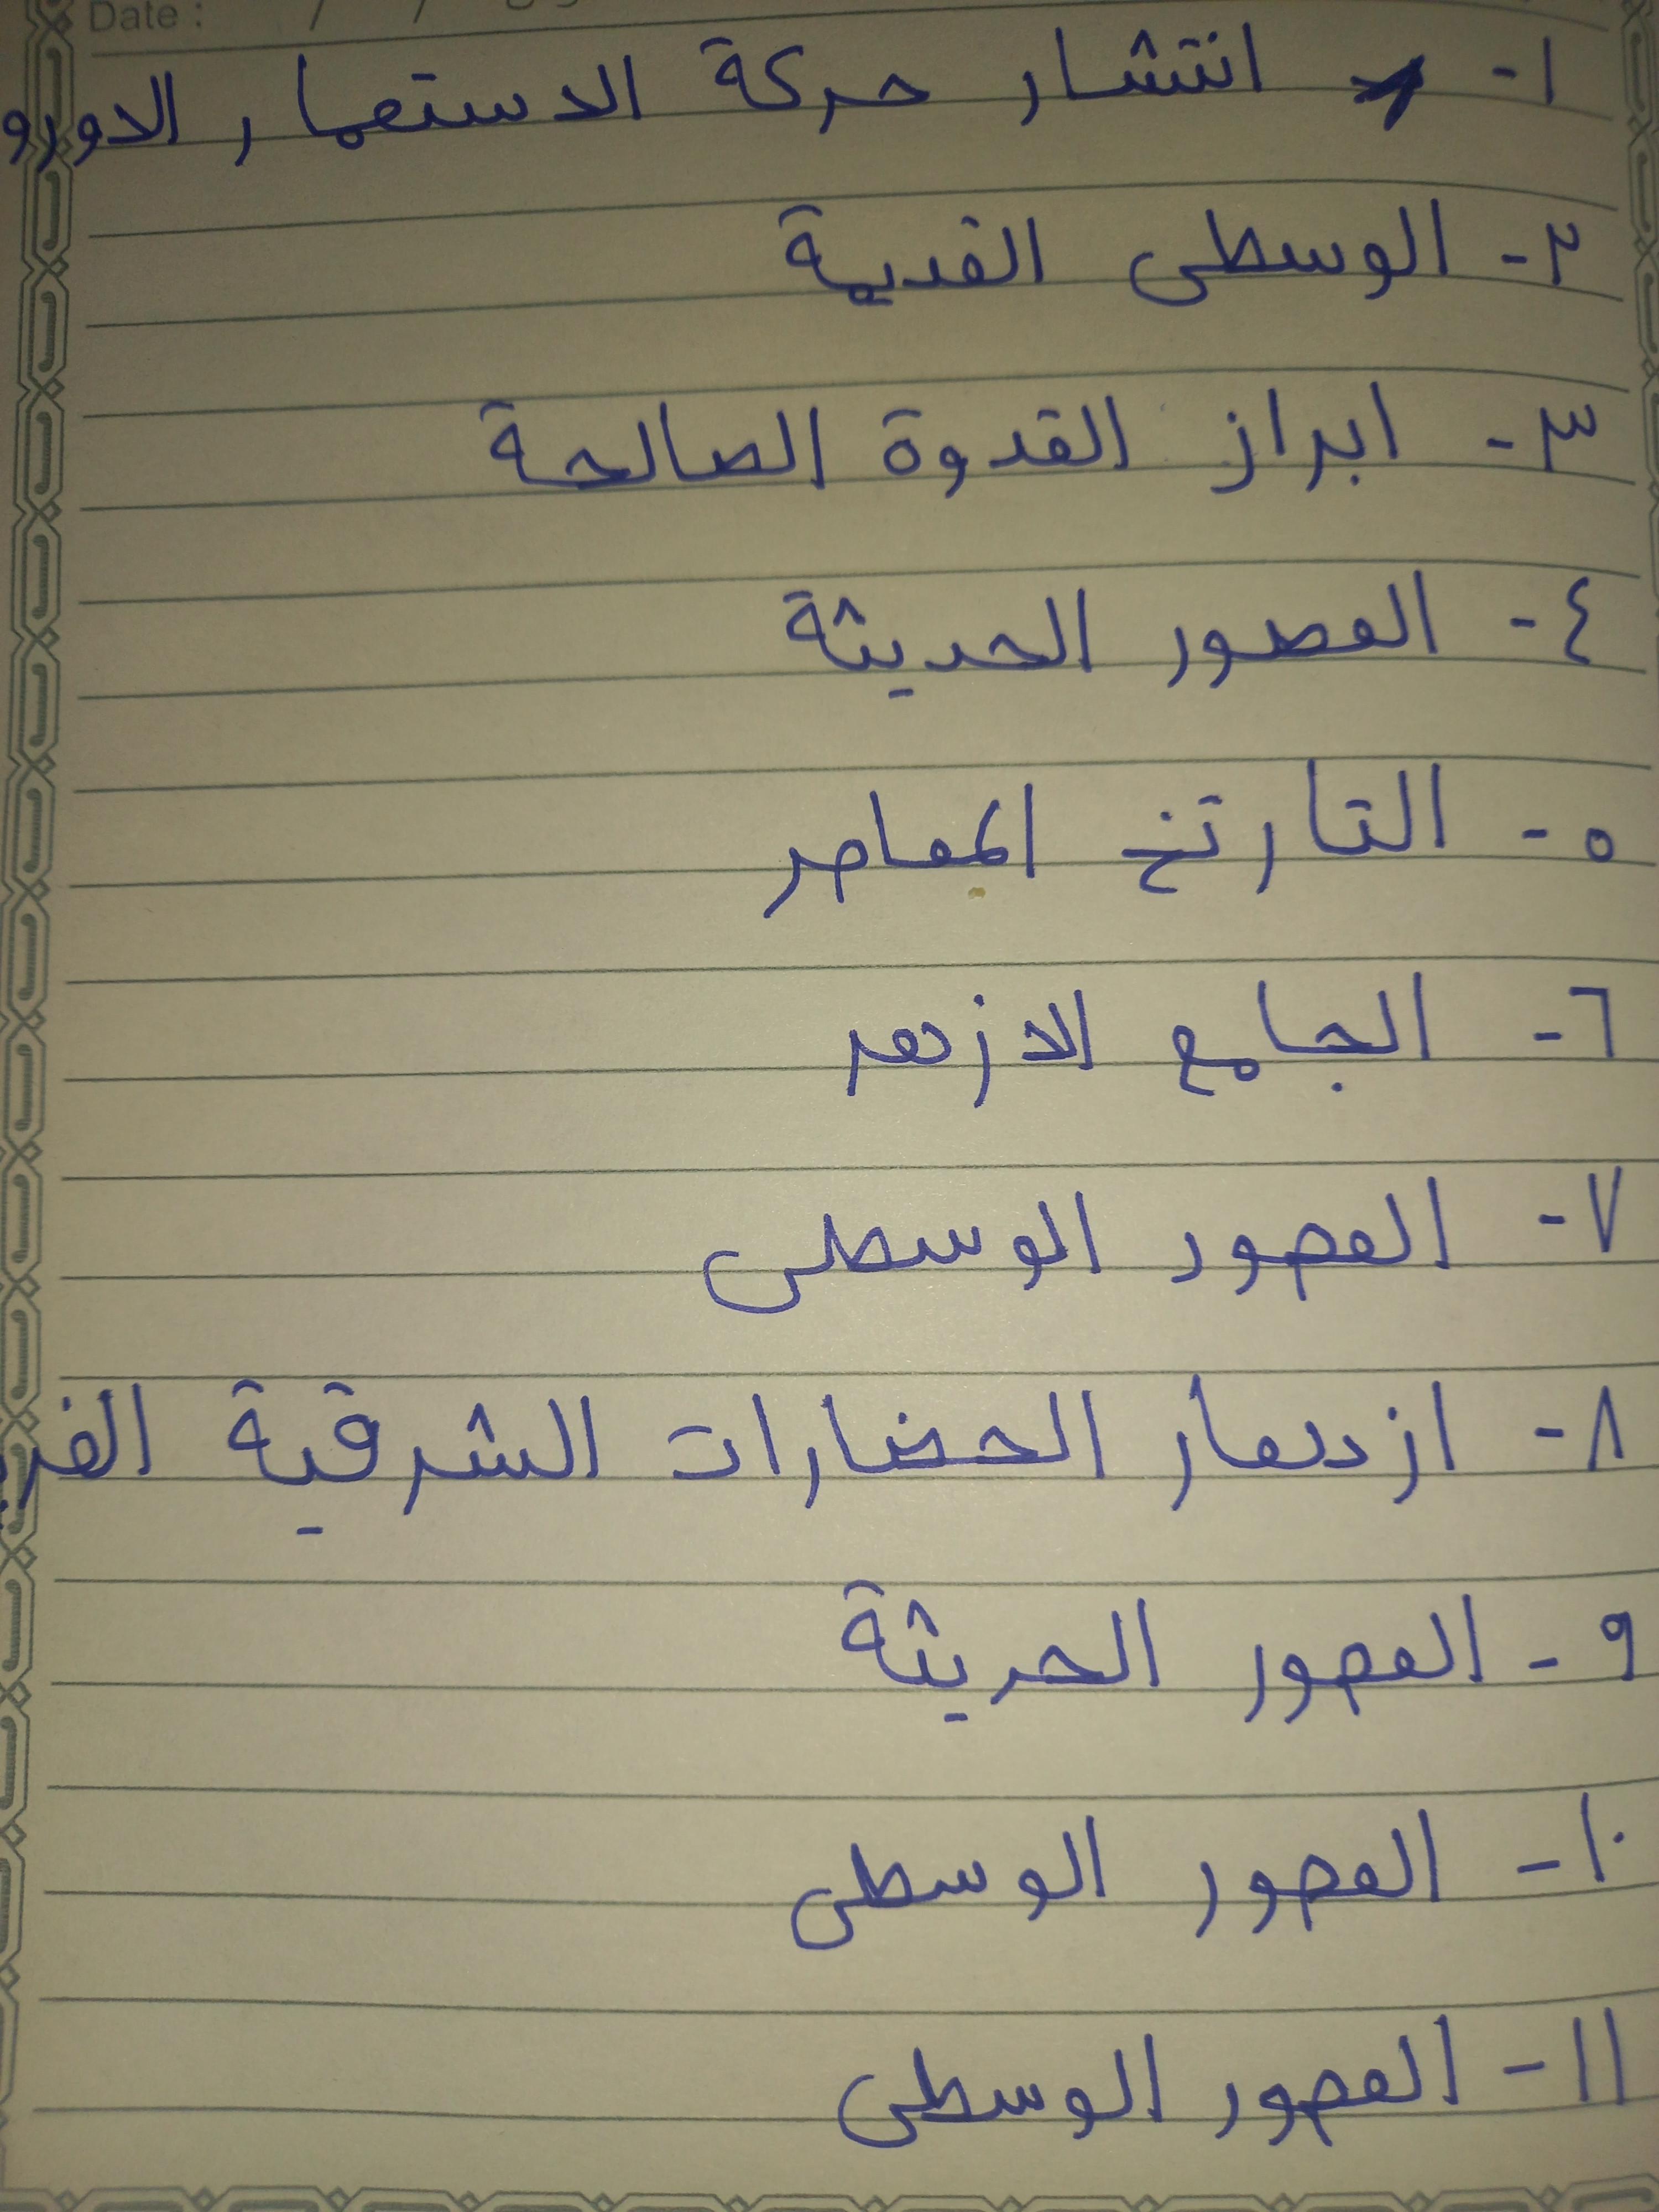 Date : / /
١- انتشار حركة الاستعمار الاورو
٢- الوسطى القديمة
٣- ابراز القدوة الصالحة
٤- العصور الحديثة
٥- التارتخ المعاصر
٦- الجامع الازهر
٧- العصور الوسطى
٨- ازدهار الحضارات الشرقية
٩- العصور الحديثة
١٠- العصور الوسطى
١١- العصور الوسطى